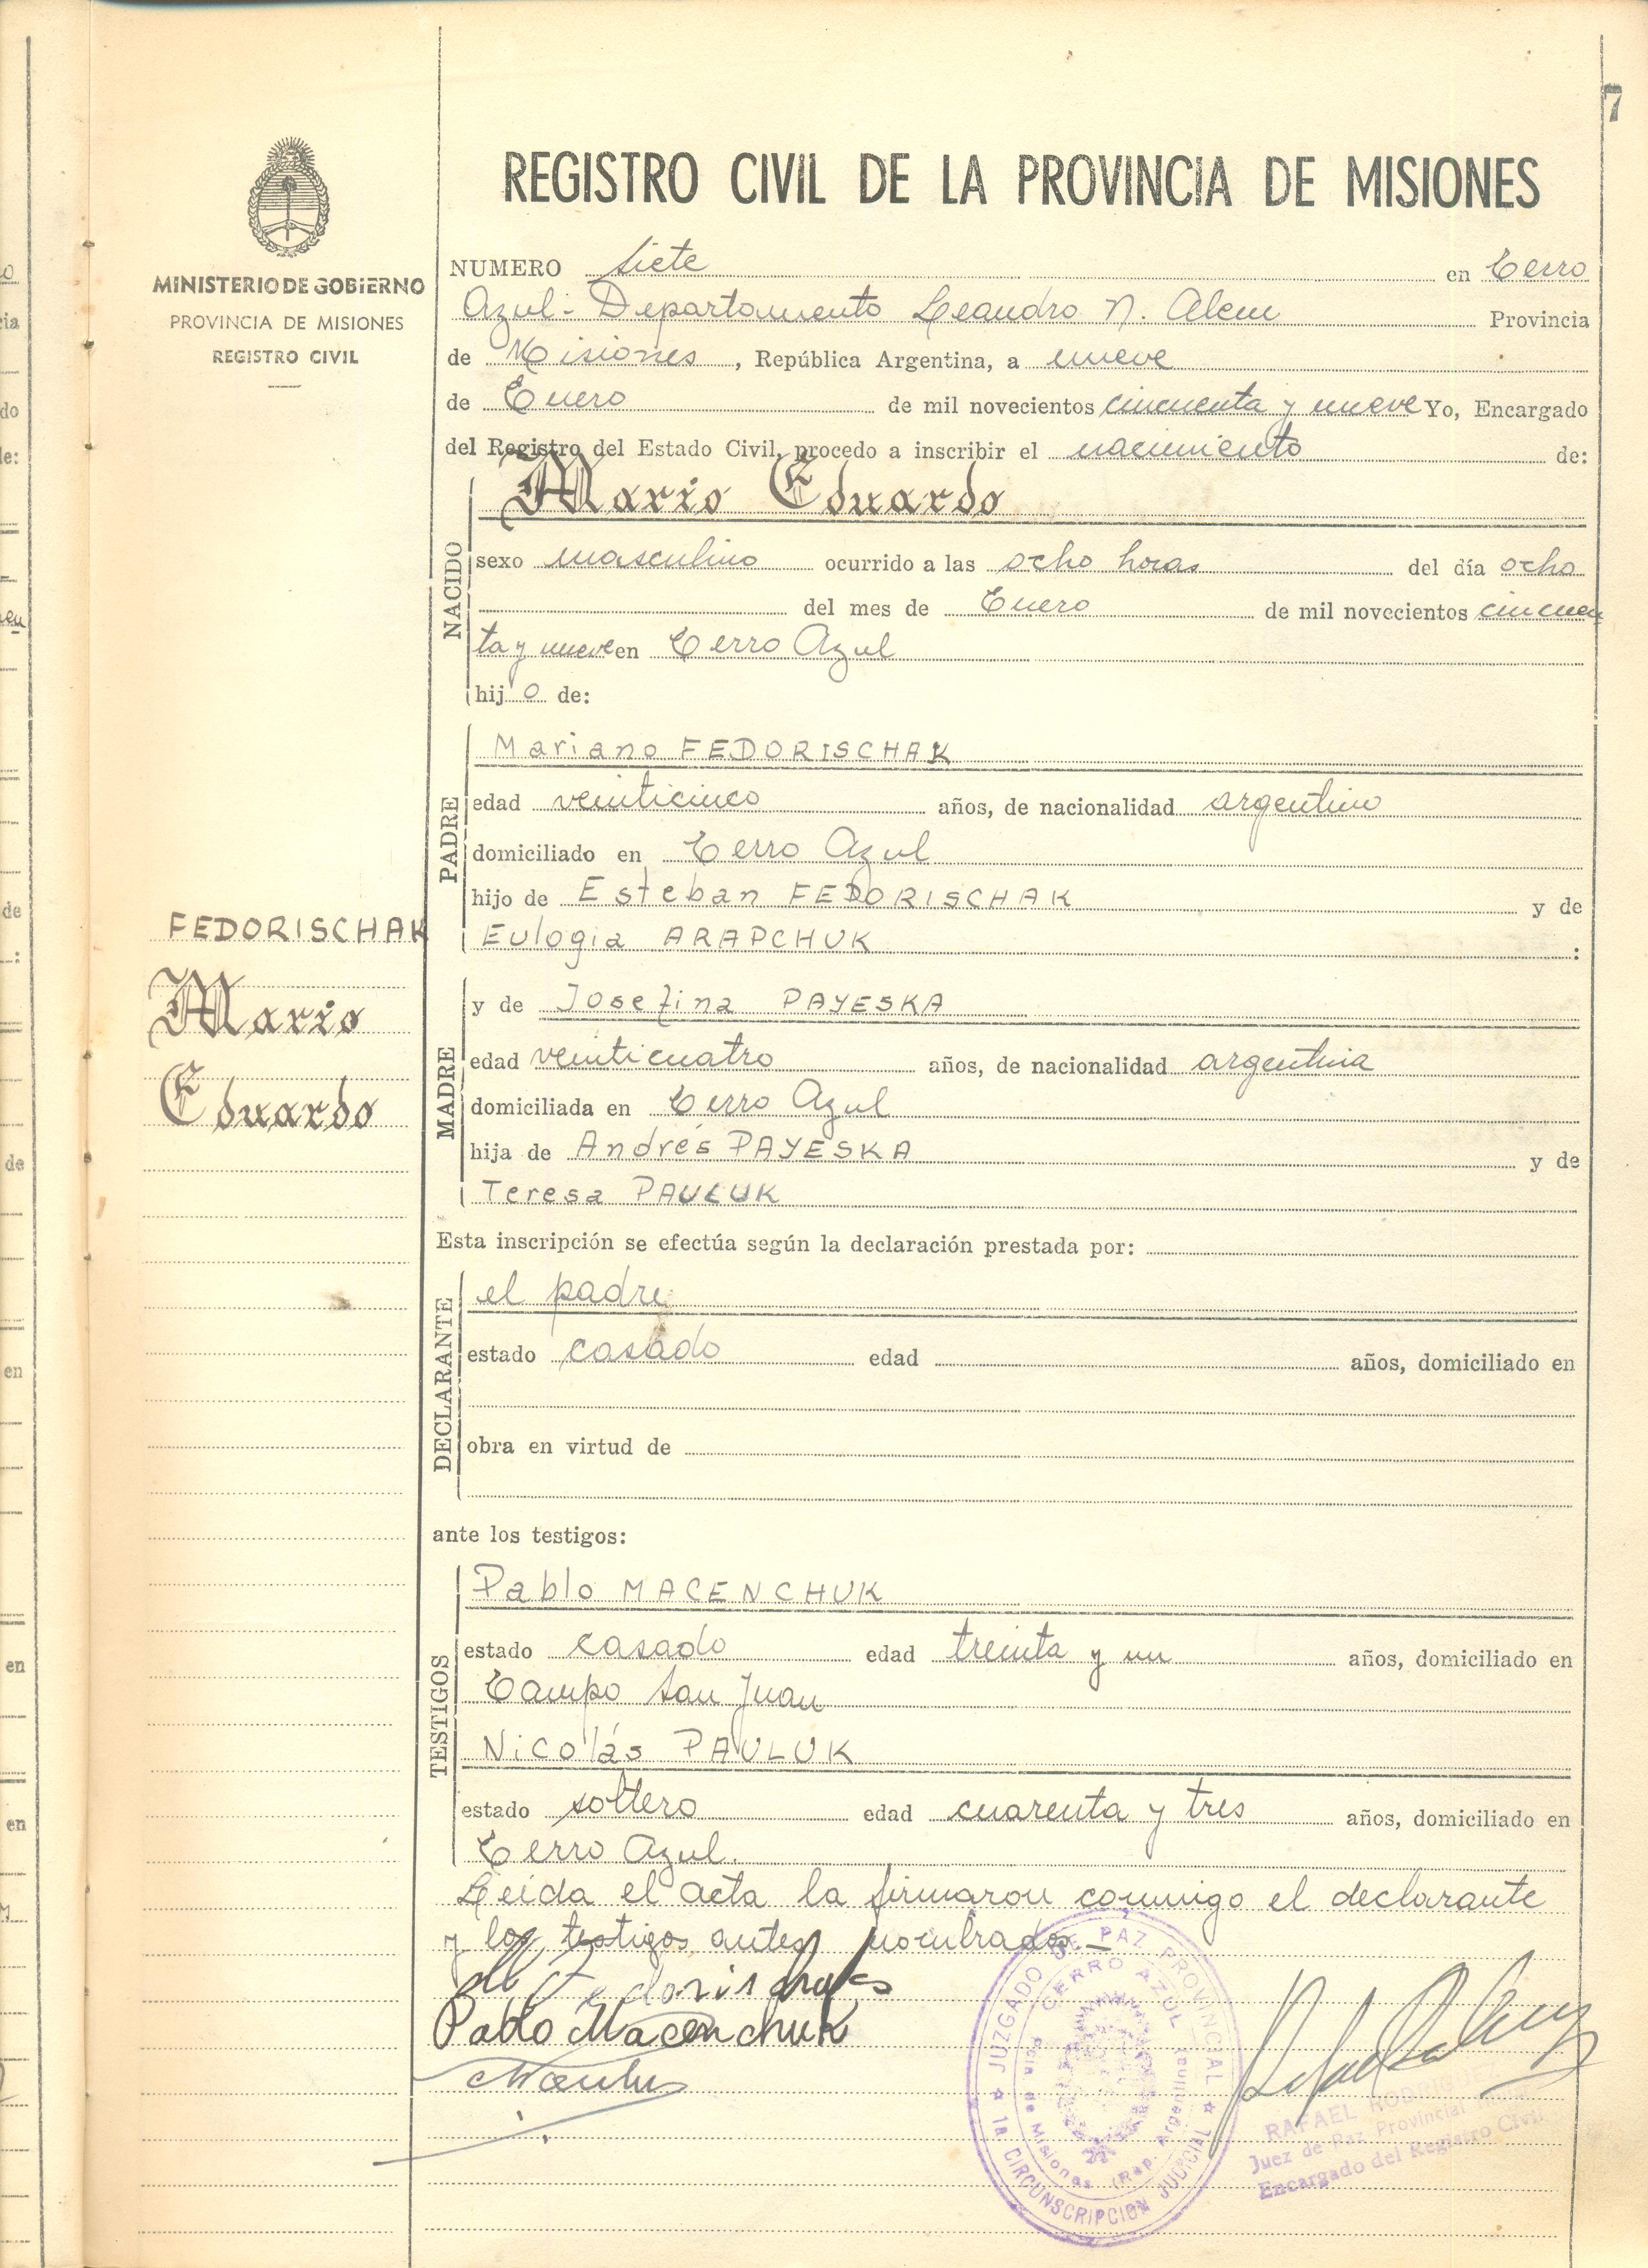 7
REGISTRO CIVIL DE LA PROVINCIA DE MISIONES
MINISTERIO DE GOBIERNO
PROVINCIA DE MISIONES
REGISTRO CIVIL
NUMERO Siete en Cerro
Azul - Departamento Leandro N. Alem Provincia
de Misiones, República Argentina, a nueve
de Enero de mil novecientos cincuenta y nueve Yo, Encargado
del Registro del Estado Civil, procedo a inscribir el nacimiento de:
NACIDO
Mario Eduardo
sexo masculino ocurrido a las ocho horas del día ocho
del mes de Enero de mil novecientos cincuen
ta y nueve en Cerro Azul
hijo de:
PADRE
Mariano FEDORISCHAK
edad veinticinco años, de nacionalidad argentino
domiciliado en Cerro Azul
hijo de Esteban FEDORISCHAK y de
Eulogia ARAPCHUK :
FEDORISCHAK
Mario
Eduardo
MADRE
y de Josefina PAYESKA
edad veinticuatro años, de nacionalidad argentina
domiciliada en Cerro Azul
hija de Andrés PAYESKA y de
Teresa PAULUK
Esta inscripción se efectúa según la declaración prestada por:
DECLARANTE
el padre
estado casado edad años, domiciliado en
obra en virtud de
ante los testigos:
TESTIGOS
Pablo MACENCHUK
estado casado edad treinta y un años, domiciliado en
Campo San Juan
Nicolás PAULUK
estado soltero edad cuarenta y tres años, domiciliado en
Cerro Azul.
Leída el acta la firmaron conmigo el declarante
y los testigos antes nombrados.-
M Fedorischak
Pablo Macenchuk
JUZGADO DE PAZ PROVINCIAL
CERRO AZUL
Pcia. de Misiones (Rep. Argentina)
1a CIRCUNSCRIPCION JUDICIAL
RAFAEL
Juez de Paz Provincial
Encargado del Registro Civil